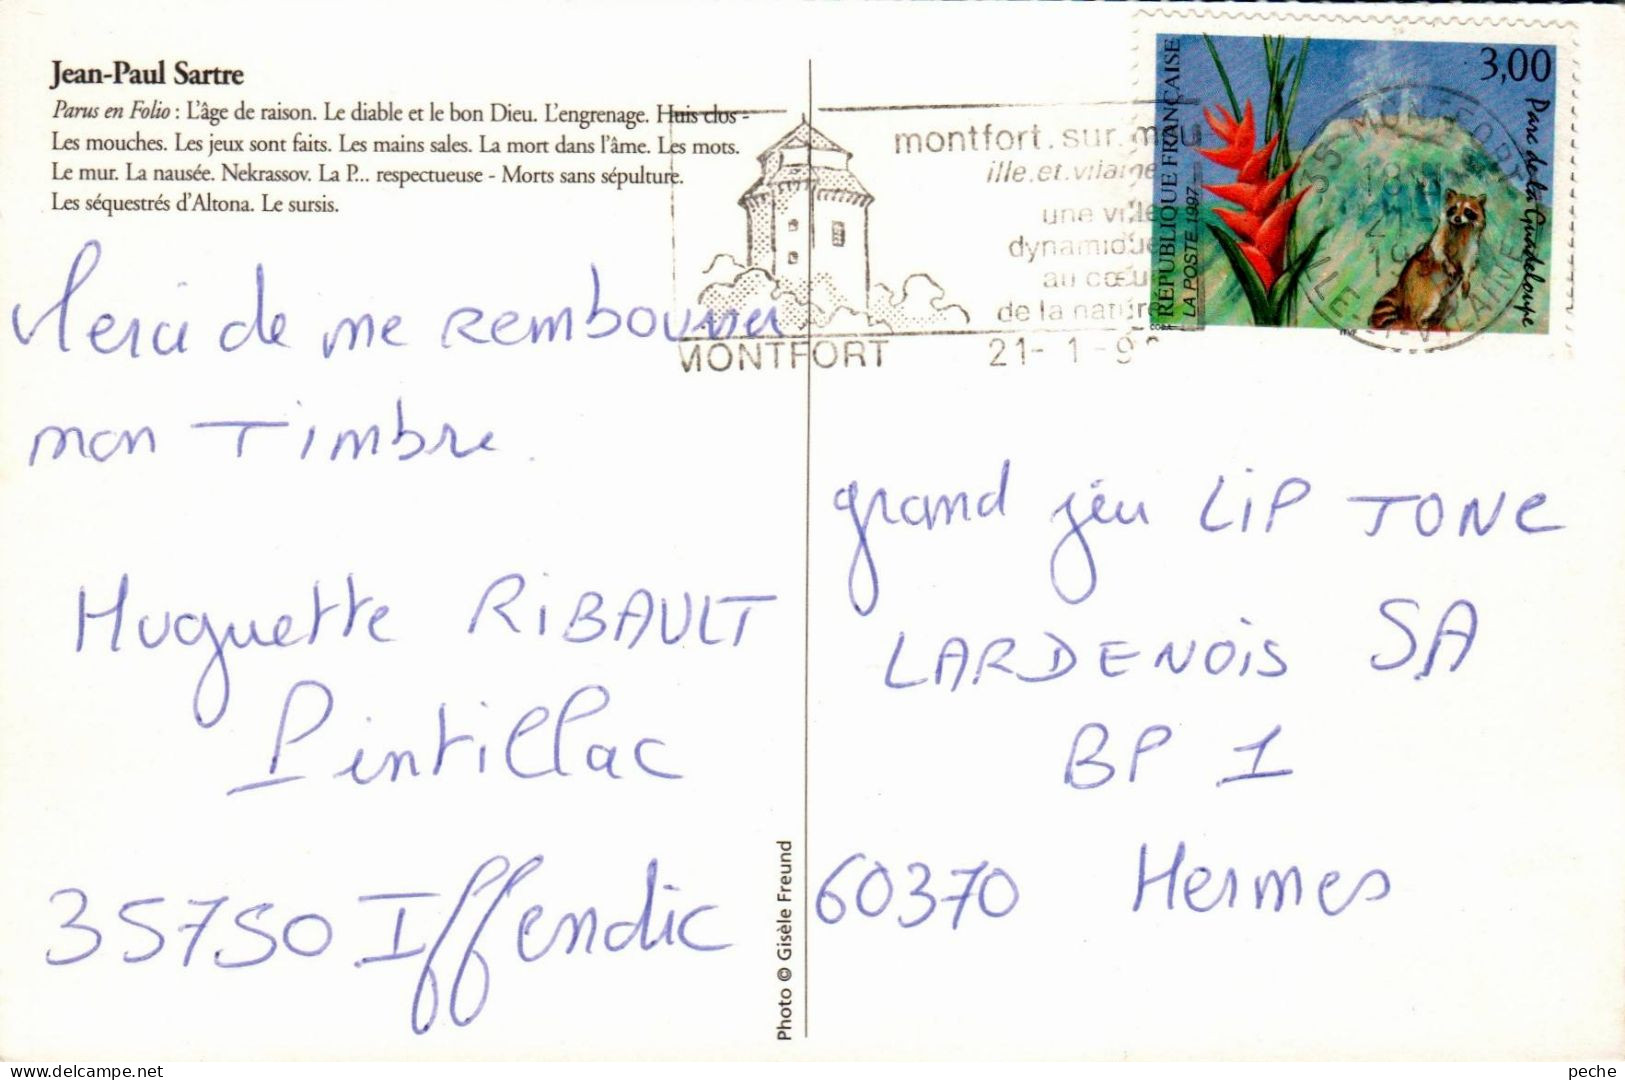 Jean-Paul Sartre
Parus en Folio : L'âge de raison. Le diable et le bon Dieu. L'engrenage. Huis clos -
Les mouches. Les jeux sont faits. Les mains sales. La mort dans l'âme. Les mots.
Le mur. La nausée. Nekrassov. La P... respectueuse - Morts sans sépulture.
Les séquestrés d'Altona. Le sursis.
Merci de me rembourser
mon Timbre.
Huguette RIBAULT
Pintillac
35750 Iffendic
Photo © Gisèle Freund
montfort.sur.meu
ille.et.vilaine
une ville
dynamique
au cœur
de la nature
MONTFORT
21-1-9
RÉPUBLIQUE FRANÇAISE
LA POSTE 1997
3,00
Parc de la Guadeloupe
35 MONTFORT
ILLE-ET-VILAINE
grand jeu LIPTONC
LARDENOIS SA
BP 1
60370 Hermes
delcampe.net
peche